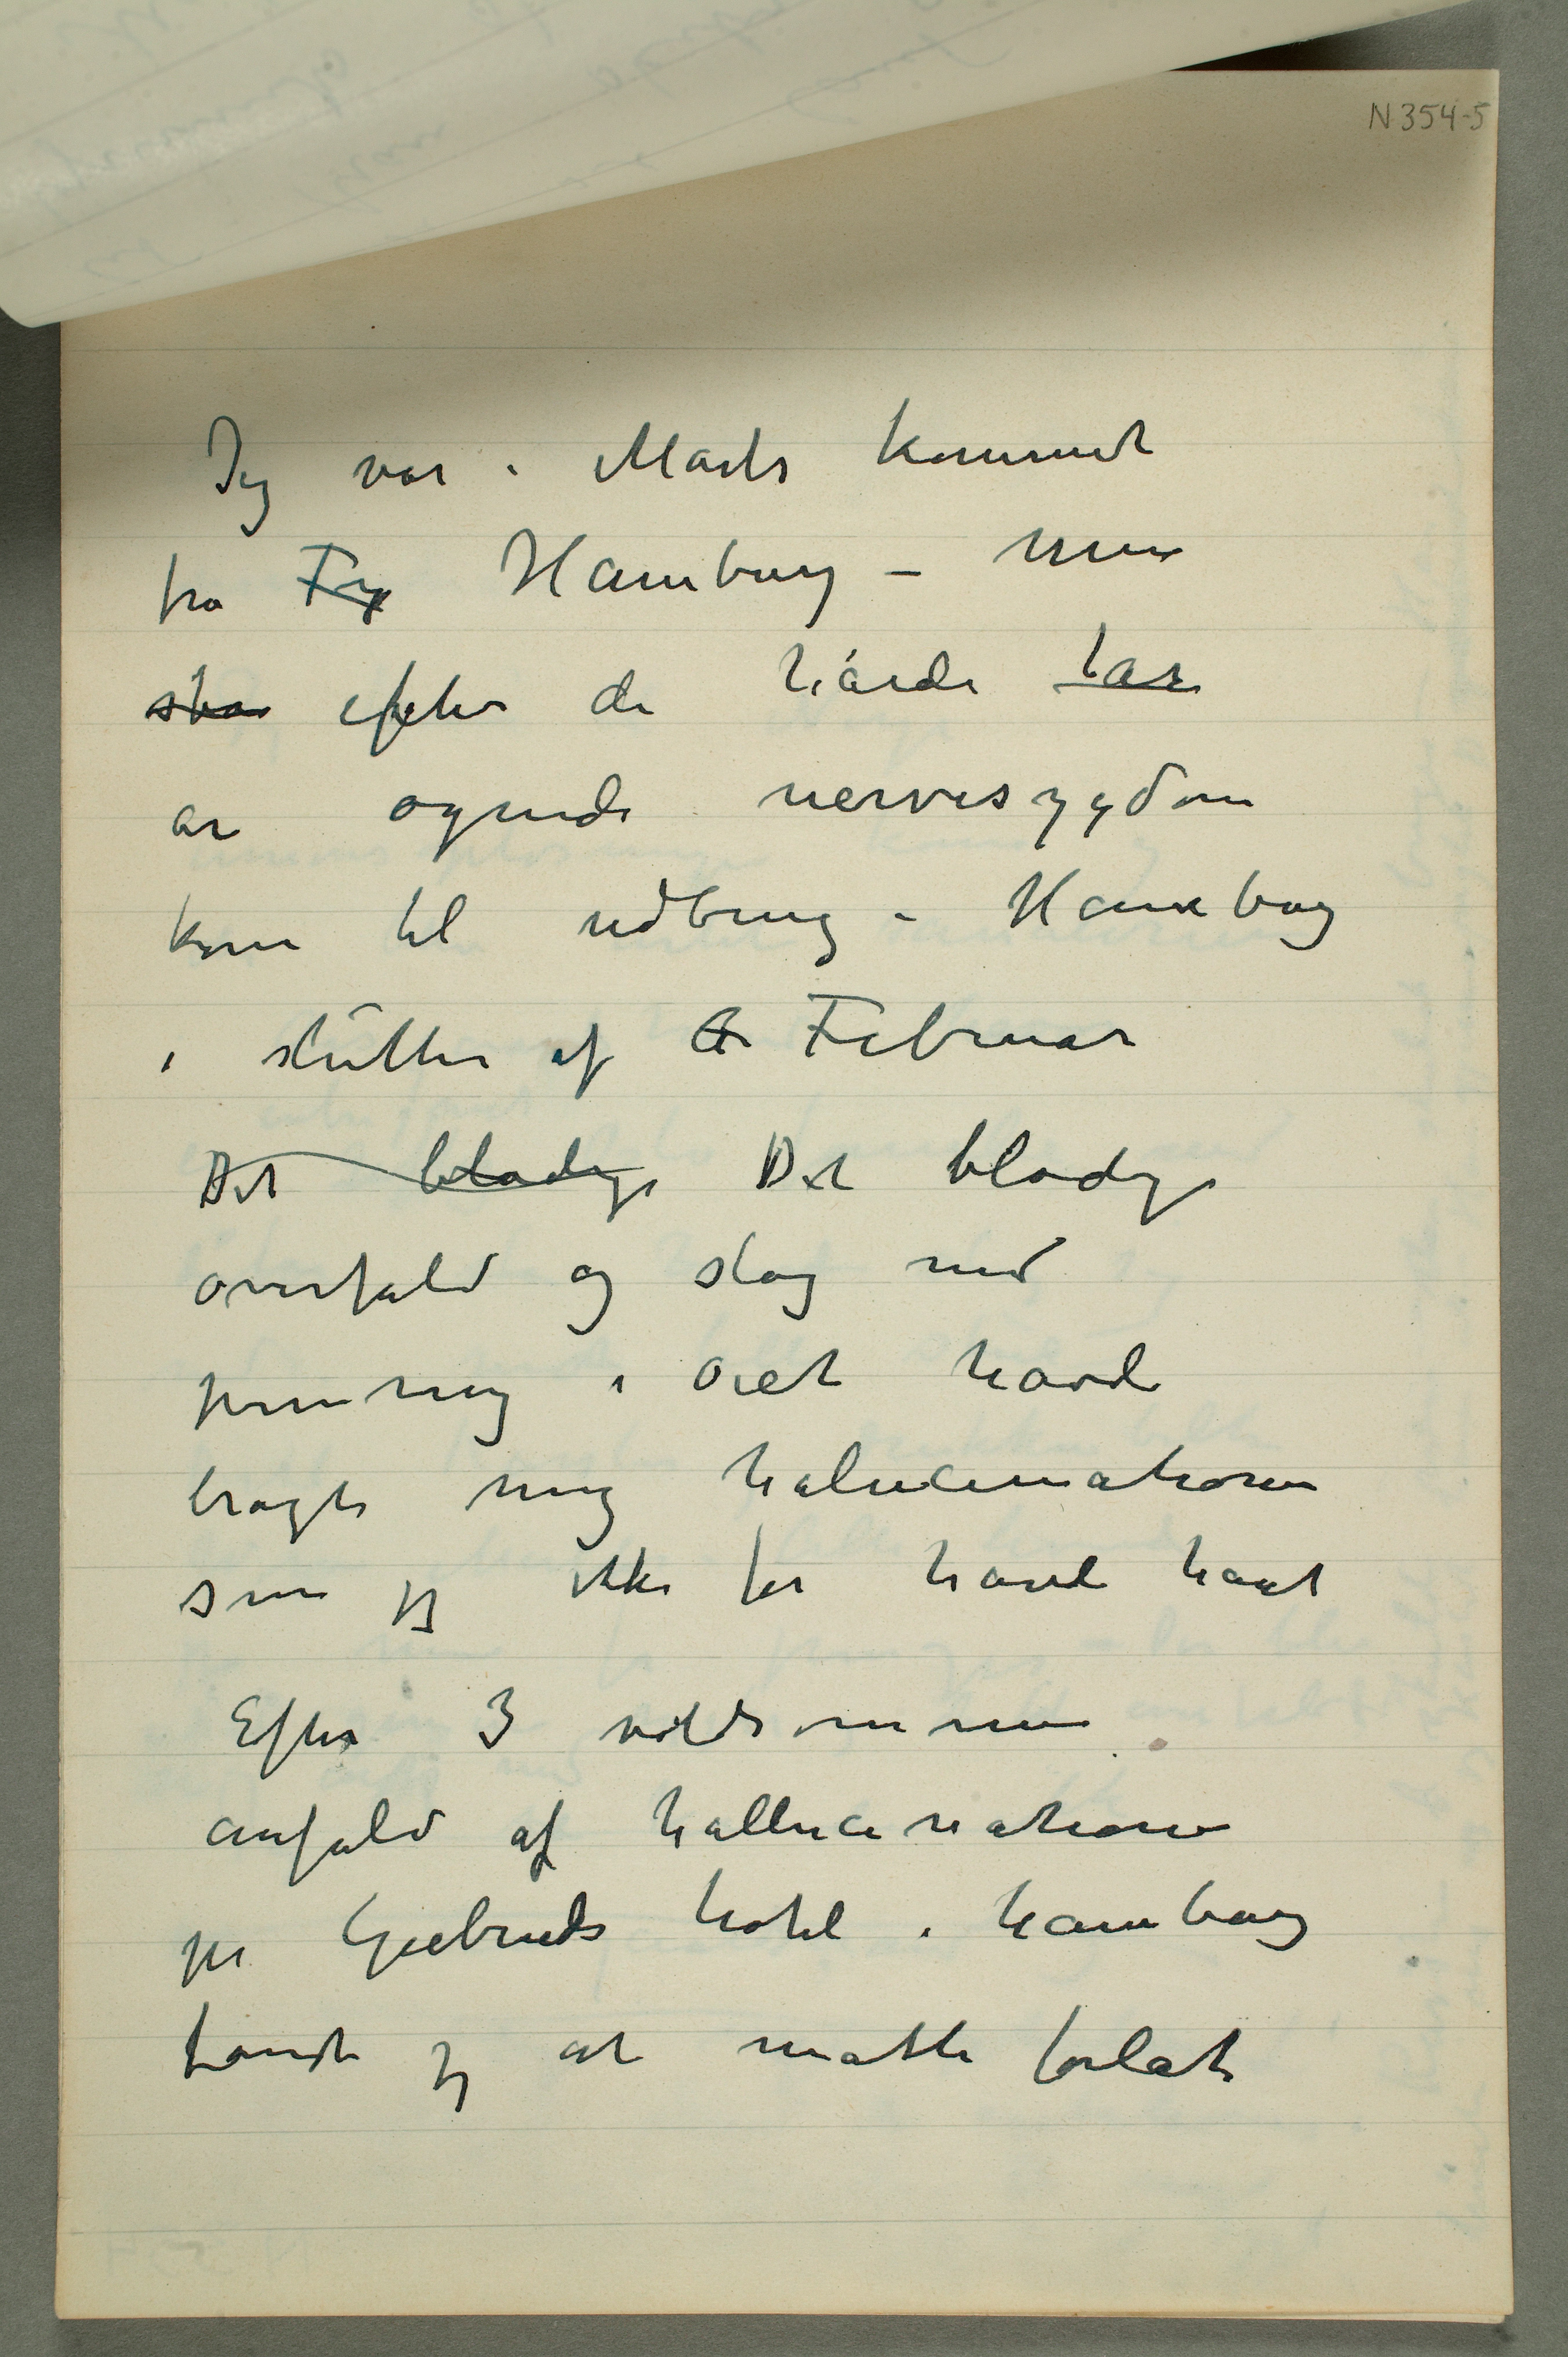 N 354-5
Jeg var i Marts kommet
fra Fry Hamburg – Min
sto efter de hårde tar
år øgende nervesygdom
kom til udbrug i Hamburg
i slutten af A Februar
Det blodige Det blodige
overfald og slag mod
hjernen i Øiet havde
bragt mig halucinationer
som jeg ikke før havde havt
Efter 3 voldsomme
anfald af hallucinationer
på Giebfrieds hotel i hamburg
fandt jeg at måtte forlate